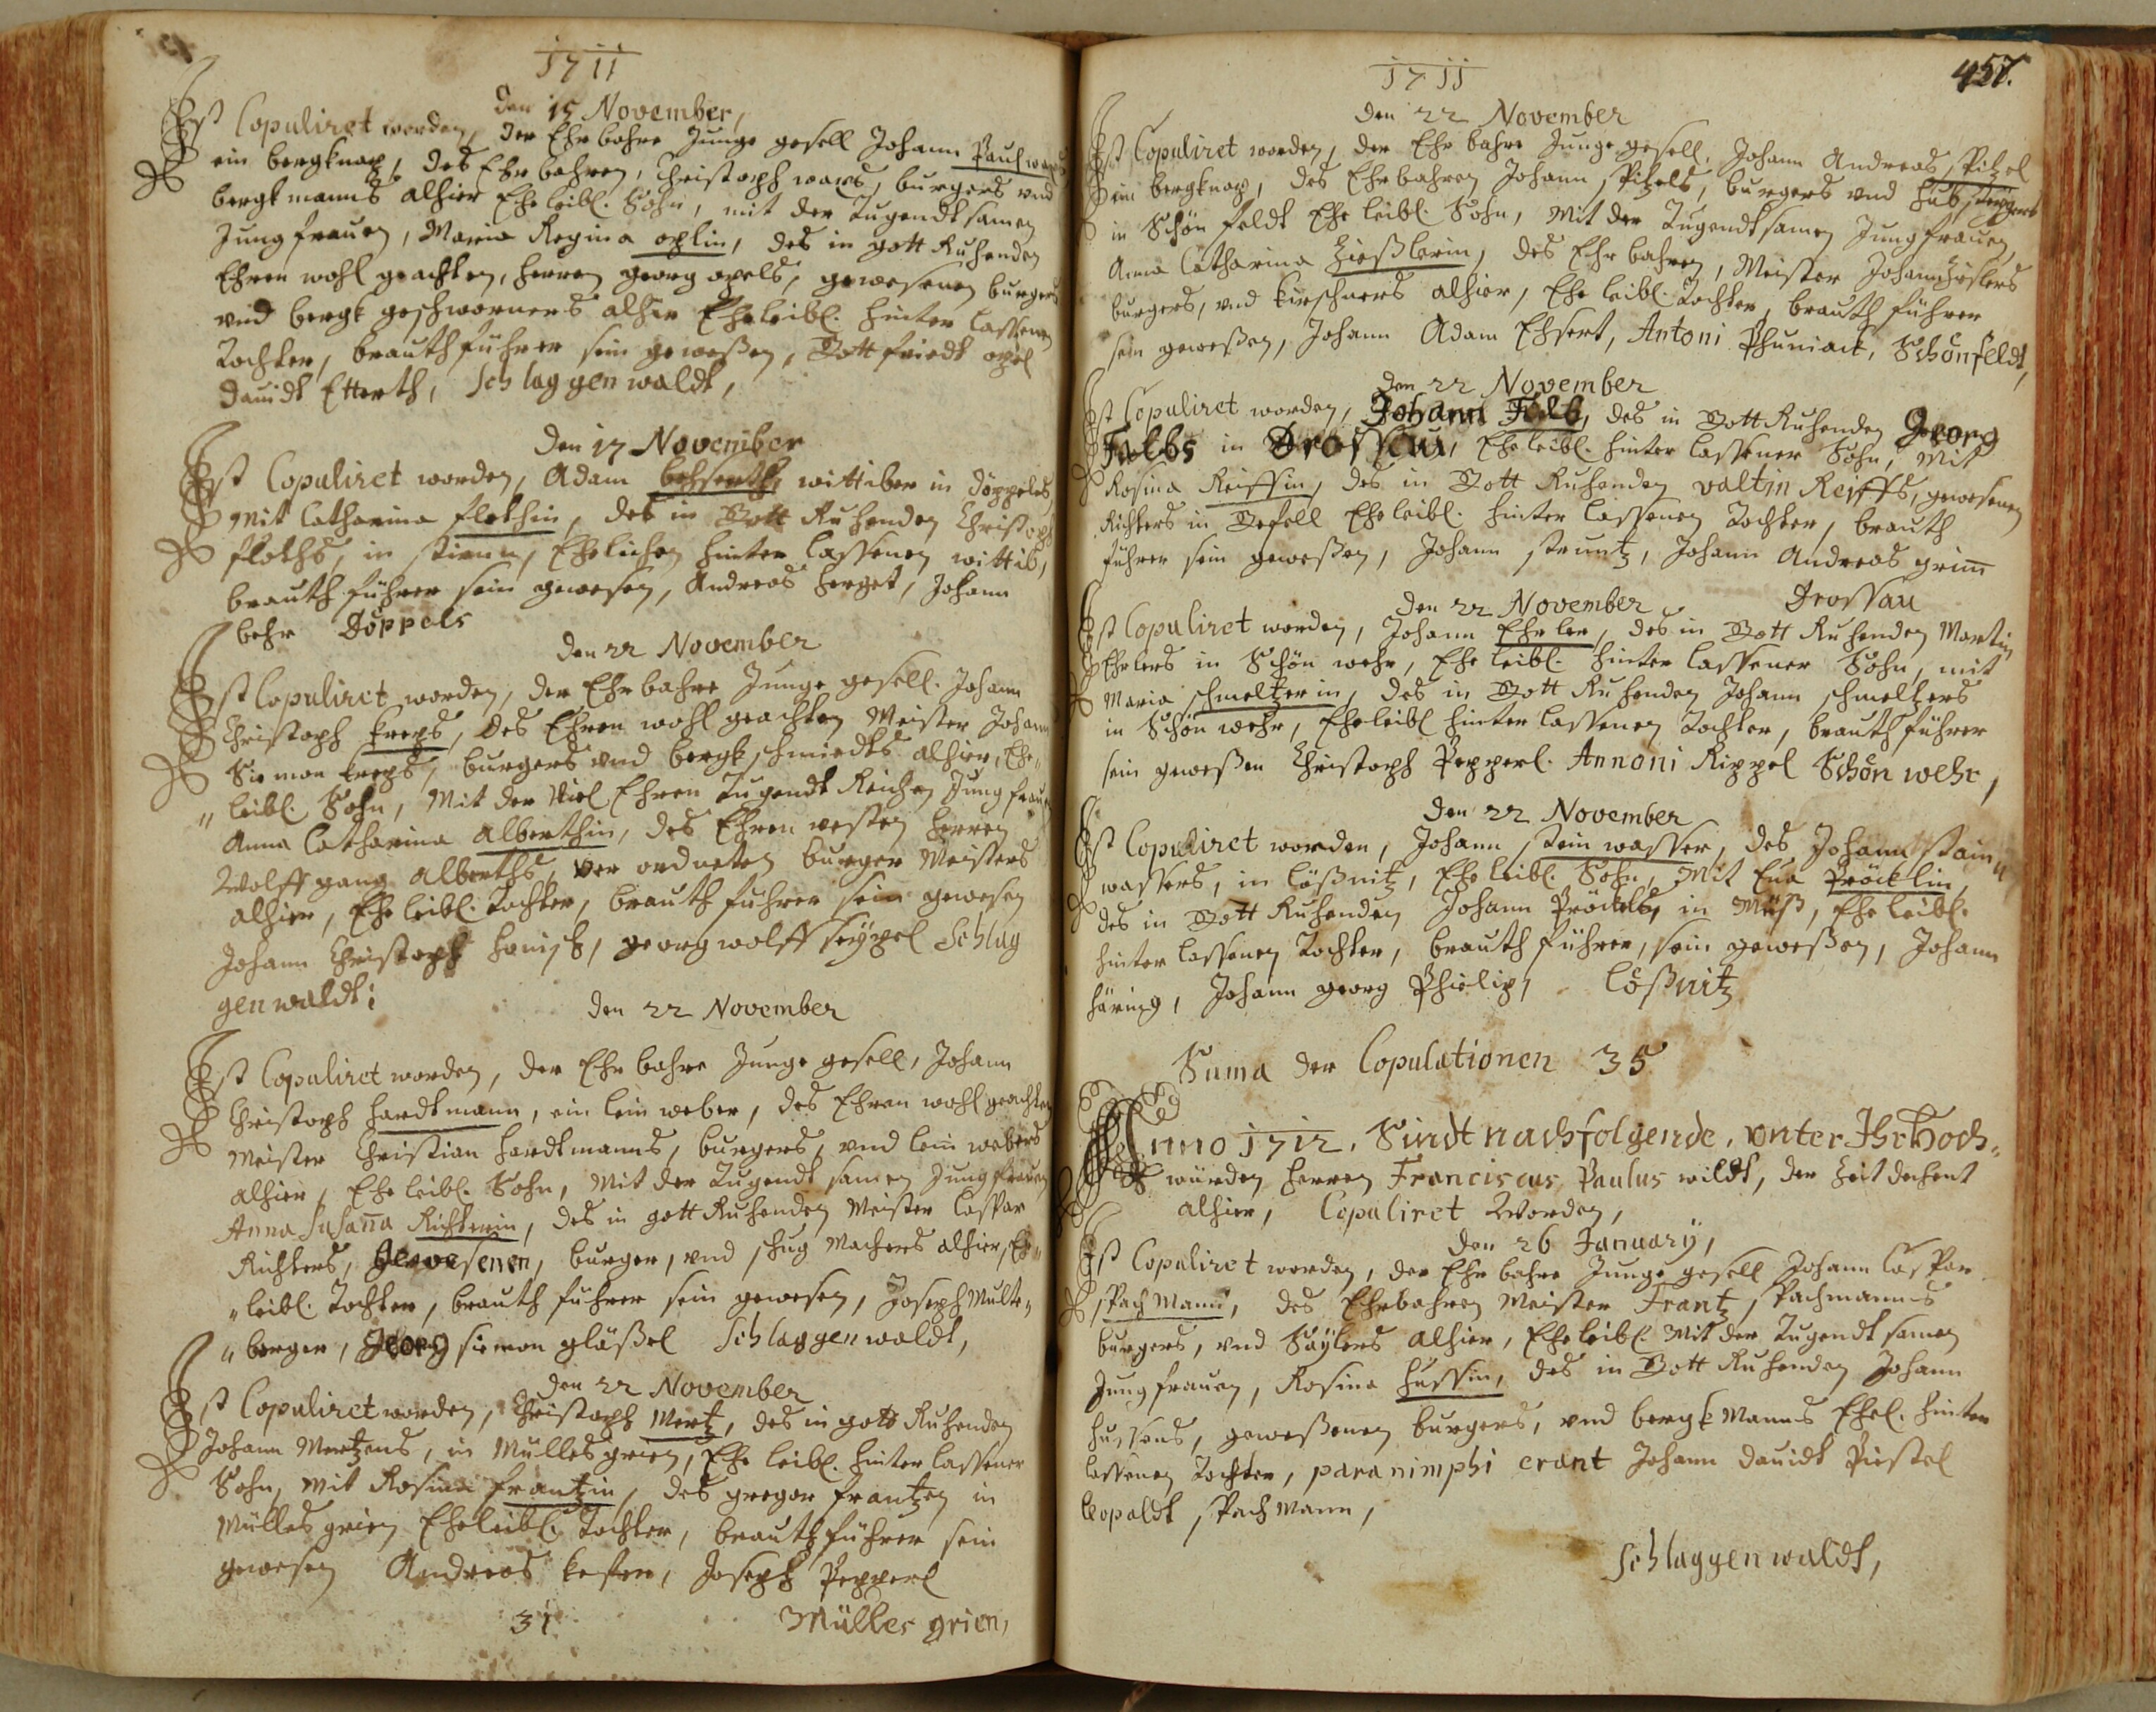 1711
Den 15 November,
Ist Copuliret worden, der Ehrbahre Junge gesell Johann
ein bergknap, des Ehrbahren, Christoph burgers vnd
bergkmanns alhier Eheleibl. Sohn, mit der Tugendtsamen
Jungfrauen, Maria Regina oplin, des in gott Ruhenden
Ehren wohl geachten, herren georg opels, gewesenen burgers
vnd bergk geschworners alhier Eheleibl. hinter lassenen
Tochter, brauthführer sein geweßen, Gottfriedt opel
Dauidt Etterth, Schlaggenwaldt,
Den 17 November
Ist Copuliret worden, Adam wittiber in Döppeles,
Mit Catharina flothin, des in Gott Ruhenden Christoph
floths, in Ehelichen hinter lassenen wittib,
brauth führer sein gewesen, Andreas herget, Johann
behr Döppels
Den 22 November
Ist Copuliret worden, der Ehrbahre Junge gesell. Johann
Christoph kreps, des Ehren wohl geachten Meister Johann
Simon kreps, burgers vnd bergkschmiedts alhier, Ehe„
„leibl. Sohn, Mit der Viel Ehren Tugendt Reichen Jungfrauen
Anna Catharina Alberthin, des Ehren vesten herren
Wolffgang Alberths, ver ordneten burger Meisters
alhier, Eheleibl. Tochter, brauth führer sein gewesen
Johann Christoph georg wolff Schlag
genwaldt;
Den 22 November
Ist Copuliret worden, der Ehrbahre Junge gesell, Johann
Christoph hardtmann, ein lein weber, des Ehren wohl geachten
Meister Christian hardtmanns, burgers, vnd lein webers
alhier, Eheleibl. Sohn, Mit der Tugendt samen Jungfrauen
Anna Susana Richterin, des in gott Ruhenden Meister Caspar
Richters, Gewesenen, burger, vnd schug Machers alhier, Ehe„
„leibl. Tochter, brauth führer sein gewesen, Joseph Multe„
„berger, Georg simon gläßel Schlaggenwaldt,
Den 22 November
Ist Copuliret worden, Christoph Mertz, des in gott Ruhenden
Johann Mertzens, in Mullesgrien, Ehe leibl. hinter lassener
Sohn, Mit Rosina frantzin, des gregor frantzen in
Müllesgrien Eheleibl. Tochter, brauthführer sein
gewesen Andreas kester, Joseph Pepperl
31 Mülles grien,
1711
457.
Den 22 November
Ist Copuliret worden, der Ehr bahre Junge gesell, Johann Andreas Pitzel
ein bergknap, des Ehrbahren Johann Pitzels, burgers vnd
in Schönfeldt Ehe leibl. Sohn, Mit der Tugendtsamen Jungfrauen,
Anna Catharina Zießlerin, des Ehr bahren, Meister Johann Zießlers
burgers, vnd kirschners alhier, Ehe leibl. Tochter, brauth führer
sein geweßen, Johann Adam Ehsert, Antoni Phuniack, Schönfeldt,
Den 22 November
Ist Copuliret worden, Johann Falb, des in Gott Ruhenden Georg
Falbs in Drossau, Eheleibl. hinter lassener Sohn, Mit
Rosina Reiffin, des in Gott Ruhenden valtin Reiffs, gewesenen
Richters in Gefell Eheleibl. hinter lassenen Tochter, brauth
führer sein geweßen, Johann struntz, Johann Andreas grim̄
Drossau
Den 22 November
Ist Copuliret worden, Johann Ehrler, des in Gott Ruhenden Martin
Ehrlers in Schön wehr, Ehe leibl. hinter lassener Sohn, mit
Maria schmeltzerin, des in Gott Ruhenden Johann schmeltzers
in Schön wehr, Eheleibl hinter lassenen Tochter, brauth führer
sein geweßen Christoph Pepperl. Annoni Rippel Schön wehr,
Den 22 November
Ist Copuliret worden, Johann stein wasser, des Johann stain
wassers, in Lößnitz, Eheleibl. Sohn, Mit Eua Pröcklin,
des in Gott Ruhenden Johann Pröckels, in Müß, Eheleibl.
hinter lassenen Tochter, brauth führer, sein geweßen, Johann
häring, Johann georg Philip, Lößnitz
Suma der Copulationen 35
Anno 1712, Sindt nachfolgende, vnter Ihr Hoch„
würden herren Franciscus Paulus wildt, der Zeit dechent
alhier, Copuliret Worden,
Den 26 January,
Ist Copuliret worden, der Ehr bahre Junge gesell Johann Caspar
Pachmann, des Ehrbahren Meister Frantz Pachmanns
burgers, vnd Säylers alhier, Eheleibl. Mit der Tugendtsamen
Jungfrauen, Rosina hussin, des in Gott Ruhenden Johann
hussens, geweßenen burgers, vnd bergkmanns Ehel. hinter
lassenen Tochter, paranimphi erant Johann Dauidt Piestel
Leopoldt Pachmann,
Schlaggenwaldt,